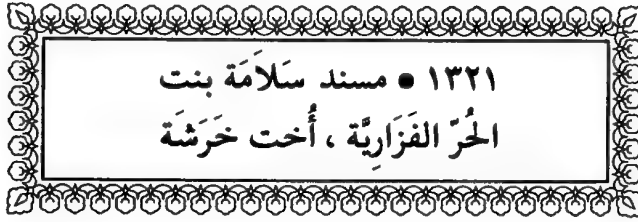 ١٣٢١ • مسند سَلَامَة بنت
الحُرّ الفَزَارِيَّة ، أُخت خَرَشَة